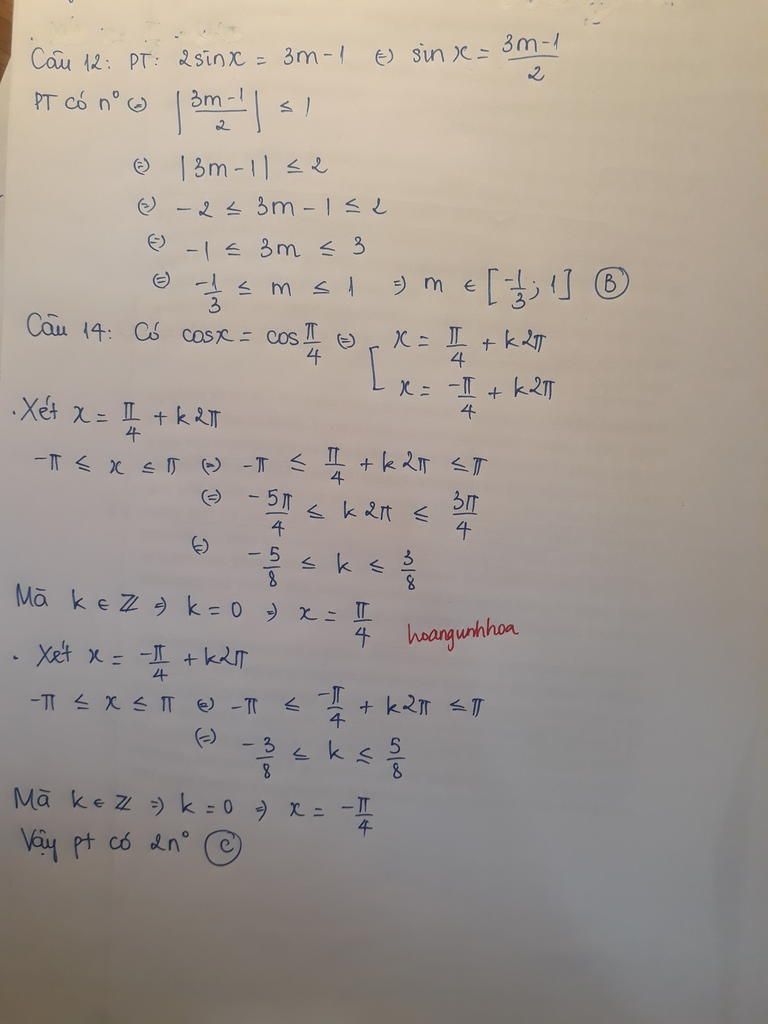 Câu 12: PT: 2sinx = 3m-1 (=) sin x = \frac{3m-1}{2}
PT có n° (=) |\frac{3m-1}{2}| ≤ 1
(=) |3m-1| ≤ 2
(=) -2 ≤ 3m-1 ≤ 2
(=) -1 ≤ 3m ≤ 3
(=) \frac{-1}{3} ≤ m ≤ 1 => m ∈ [\frac{-1}{3}; 1] (B)
Câu 14: Có cosx = cos\frac{π}{4} (=) [ x = \frac{π}{4} + k2π
x = \frac{-π}{4} + k2π
. Xét x = \frac{π}{4} + k2π
-π ≤ x ≤ π (=) -π ≤ \frac{π}{4} + k2π ≤ π
(=) \frac{-5π}{4} ≤ k2π ≤ \frac{3π}{4}
(=) \frac{-5}{8} ≤ k ≤ \frac{3}{8}
Mà k ∈ Z => k = 0 => x = \frac{π}{4}
hoangunhhoa
. Xét x = \frac{-π}{4} + k2π
-π ≤ x ≤ π (=) -π ≤ \frac{-π}{4} + k2π ≤ π
(=) \frac{-3}{8} ≤ k ≤ \frac{5}{8}
Mà k ∈ Z => k = 0 => x = \frac{-π}{4}
Vậy pt có 2n° (C)